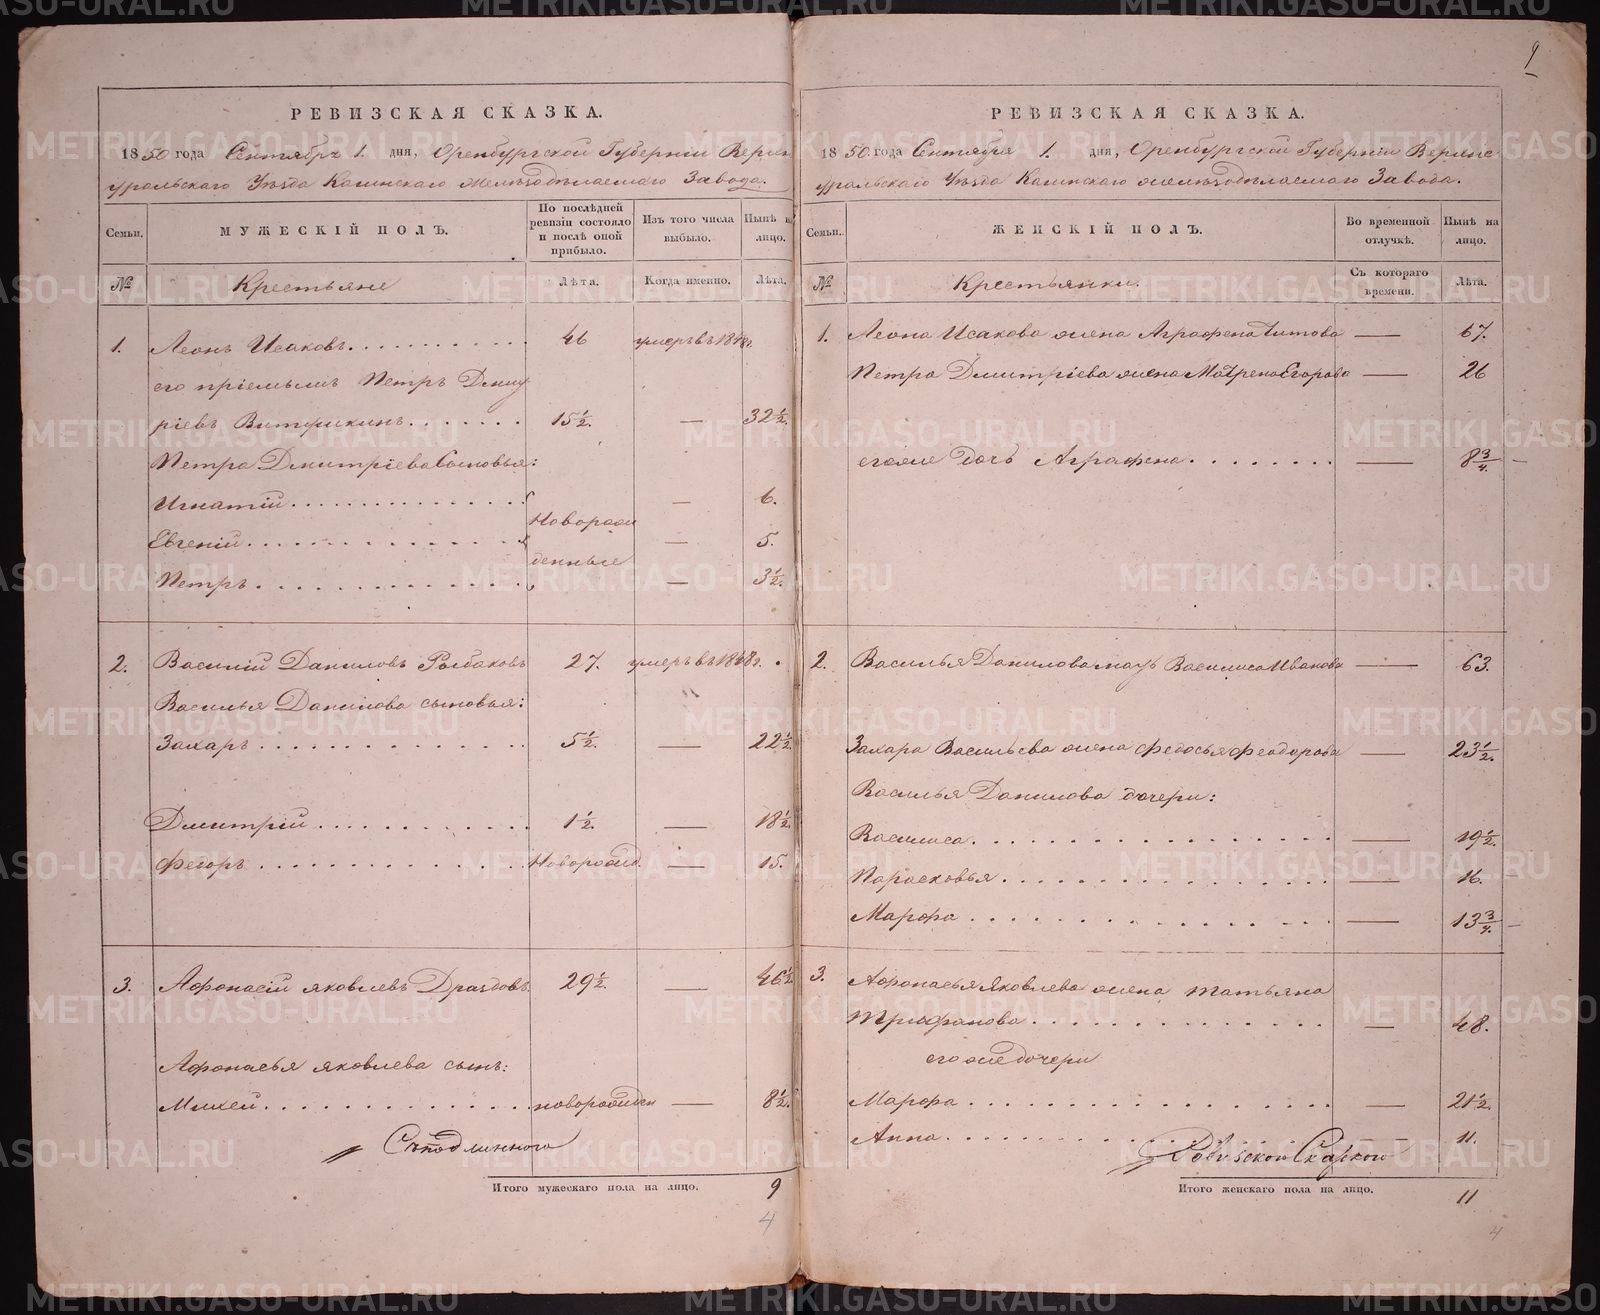 9
РЕВИЗСКАЯ СКАЗКА.
1850 года Сентября 1. дня, Оренбургской Губерніи Верхне
уральскаго Уѣзда Кагинскаго желѣзодѣлаемаго Завода.
Семьи. МУЖЕСКІЙ ПОЛЪ. По послѣдней ревизіи состояло и послѣ оной прибыло. Изъ того числа выбыло. Нынѣ на лицо.
№ Крестьяне Лѣта. Когда именно. Лѣта.
1. Леонъ Исаковъ 46 умеръ въ 1848 г.
его пріемышъ Петръ Дмит
ріевъ 15½. — 32½.
Петра Дмитріева Сыновья:
Игнатій Новорож — 6.
Евгеній — 5.
денные
Петръ — 3½.
2. Василій Даниловъ Рыбаковъ 27. умеръ въ 1848 г.
Василья Данилова сыновья:
Захаръ 5½. — 22½.
Дмитрій 1½. — 18½.
Федоръ Новорожд. — 15.
3. Афонасій Яковлевъ Дроздовъ 29½. — 46½.
Афонасья Яковлева сынъ:
Михей новорожден — 8½.
Съ подлинного
Итого мужескаго пола на лицо. 9
4
РЕВИЗСКАЯ СКАЗКА.
1850 года Сентября 1. дня, Оренбургской Губерніи Верхне
уральскаго Уѣзда Кагинскаго желѣзодѣлаемаго Завода.
Семьи. ЖЕНСКІЙ ПОЛЪ. Во временной отлучкѣ. Нынѣ на лицо.
№ Крестьянки. Съ котораго времени. Лѣта.
1. Леона Исакова жена Аграфена Титова — 67.
Петра Дмитріева жена Матрена Егорова — 26
егоже дочь Аграфена — 8¾.
2. Василья Данилова мать Василиса Иванова — 63.
Захара Васильева жена Федосья Феодорова — 23½.
Василья Данилова дочери:
Василиса — 19½.
Парасковья — 16.
Марфа — 13¾.
3. Афонасья Яковлева жена Татьяна
Трифанова — 48.
его же дочери
Марфа — 21½.
Анна — 11.
Ревизскою Сказкою
Итого женскаго пола на лицо. 11
4
METRIKI.GASO-URAL.RU